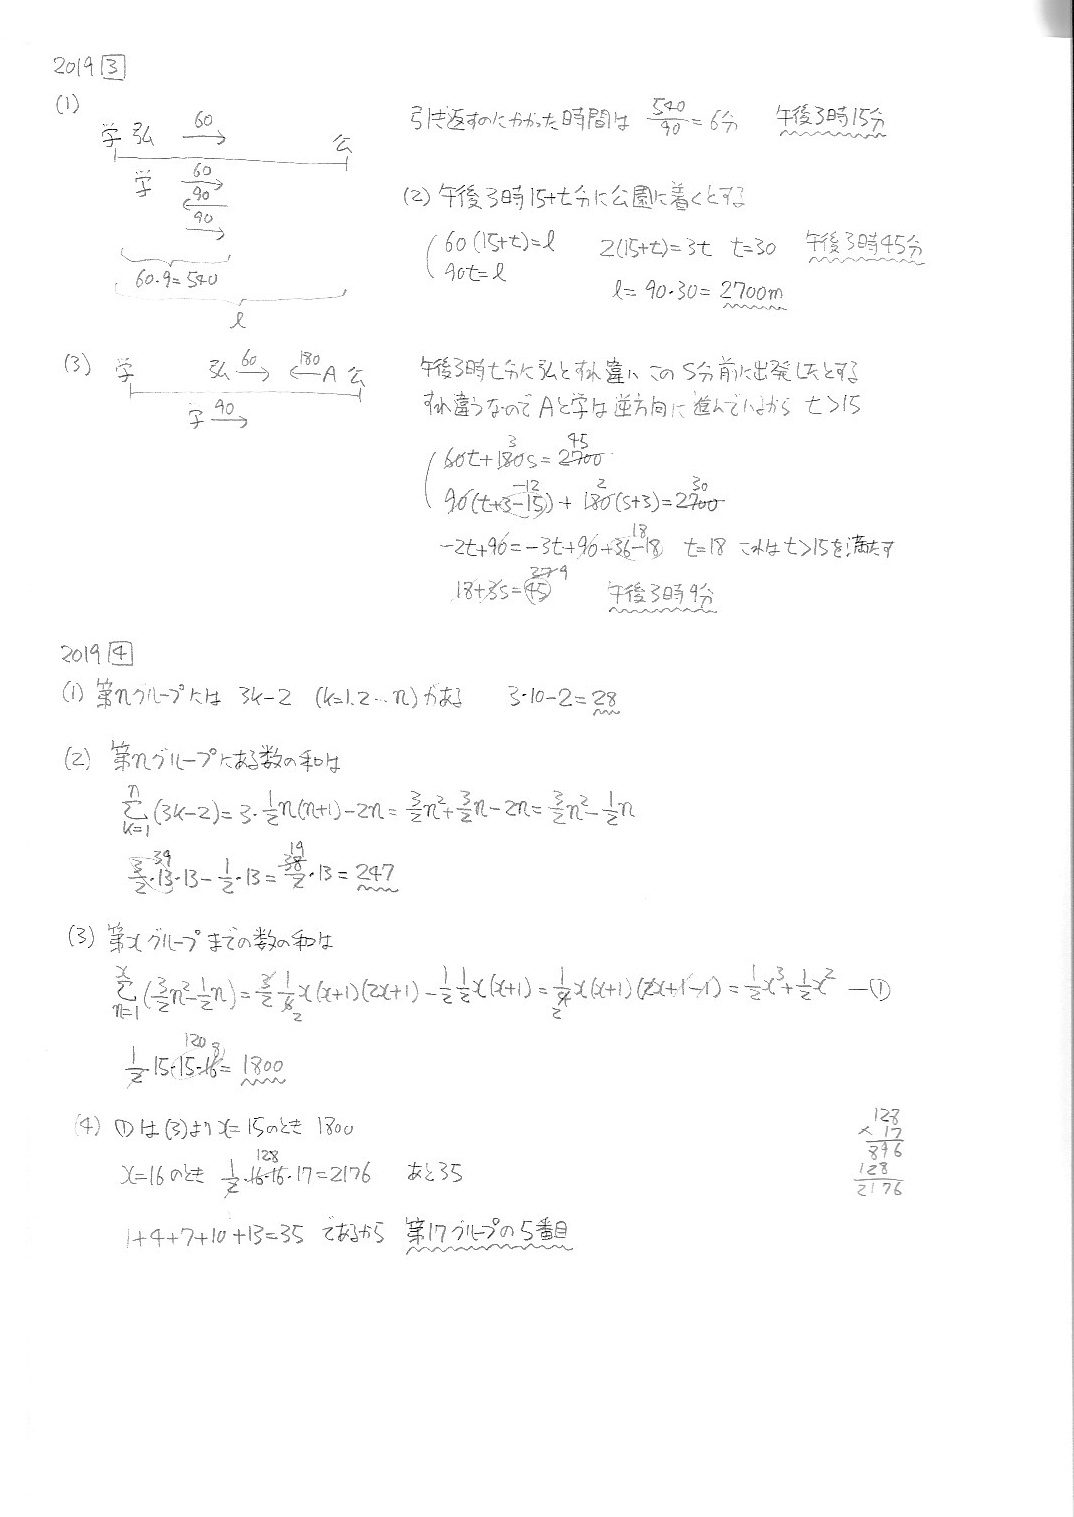 2019 3
(1)
学 弘 60 → 公
学 60 →
90 ←
90 →
60・9=540
l
引き返すのにかかった時間は 540/90 = 6分 午後3時15分
(2) 午後3時15+t分に公園に着くとする
60(15+t)=l 2(15+t)=3t t=30 午後3時45分
90t=l l=90・30=2700m
(3) 学 弘 60 → 180 ← A 公
学 90 →
午後3時t分に弘とすれ違い このS分前に出発したとする
すれ違うなので Aと学は逆方向に進んでいるから t>15
60t+180s=2700 3 45
90(t+3-15)+180(s+3)=2700 -12 2 30
-2t+90=-3t+90+36-18 18 t=18 これはt>15を満たす
18+3s=45 27 9 午後3時9分
2019 4
(1) 第nグループには 3k-2 (k=1.2…n)がある 3・10-2=28
(2) 第nグループにある数の和は
n Σ k=1 (3k-2)=3・1/2n(n+1)-2n=3/2n²+3/2n-2n=3/2n²-1/2n
3/2・13・13-1/2・13=38/2・13=247 39 19
(3) 第xグループまでの数の和は
x Σ n=1 (3/2n²-1/2n)=3/2 1/6x(x+1)(2x+1)-1/2 1/2x(x+1)=1/4x(x+1)(2x+1-1)=1/2x³+1/2x² ―① 2 2
1/2・15・15・16=1800 120 8
(4) ①は(3)よりx=15のとき 1800
x=16のとき 1/2・16・16・17=2176 128 あと35
1+4+7+10+13=35 であるから 第17グループの5番目
128
× 17
896
128
2176